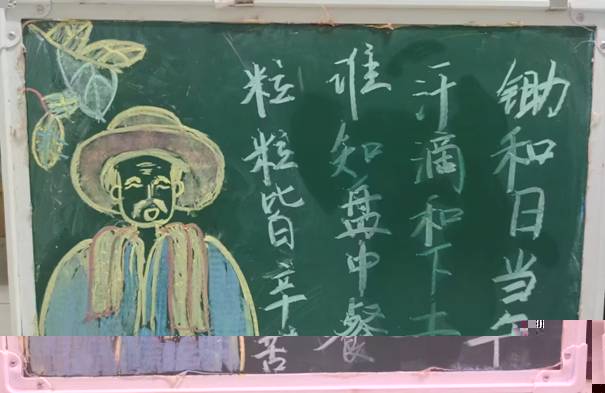 锄和日当午
汗滴和下土
谁知盘中餐
粒粒皆辛苦